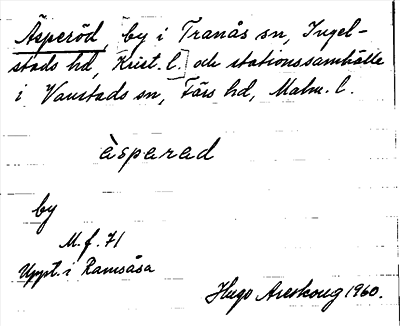 Äsperöd, by i Tranås sn, Ingel-
stads hd, Krist. l.] och stationssamhälle
i Vanstads sn, Färs hd, Malm. l.
àsparad
by
M. f. 71
Uppt. i Ramsåsa
Hugo Areskoug 1960.